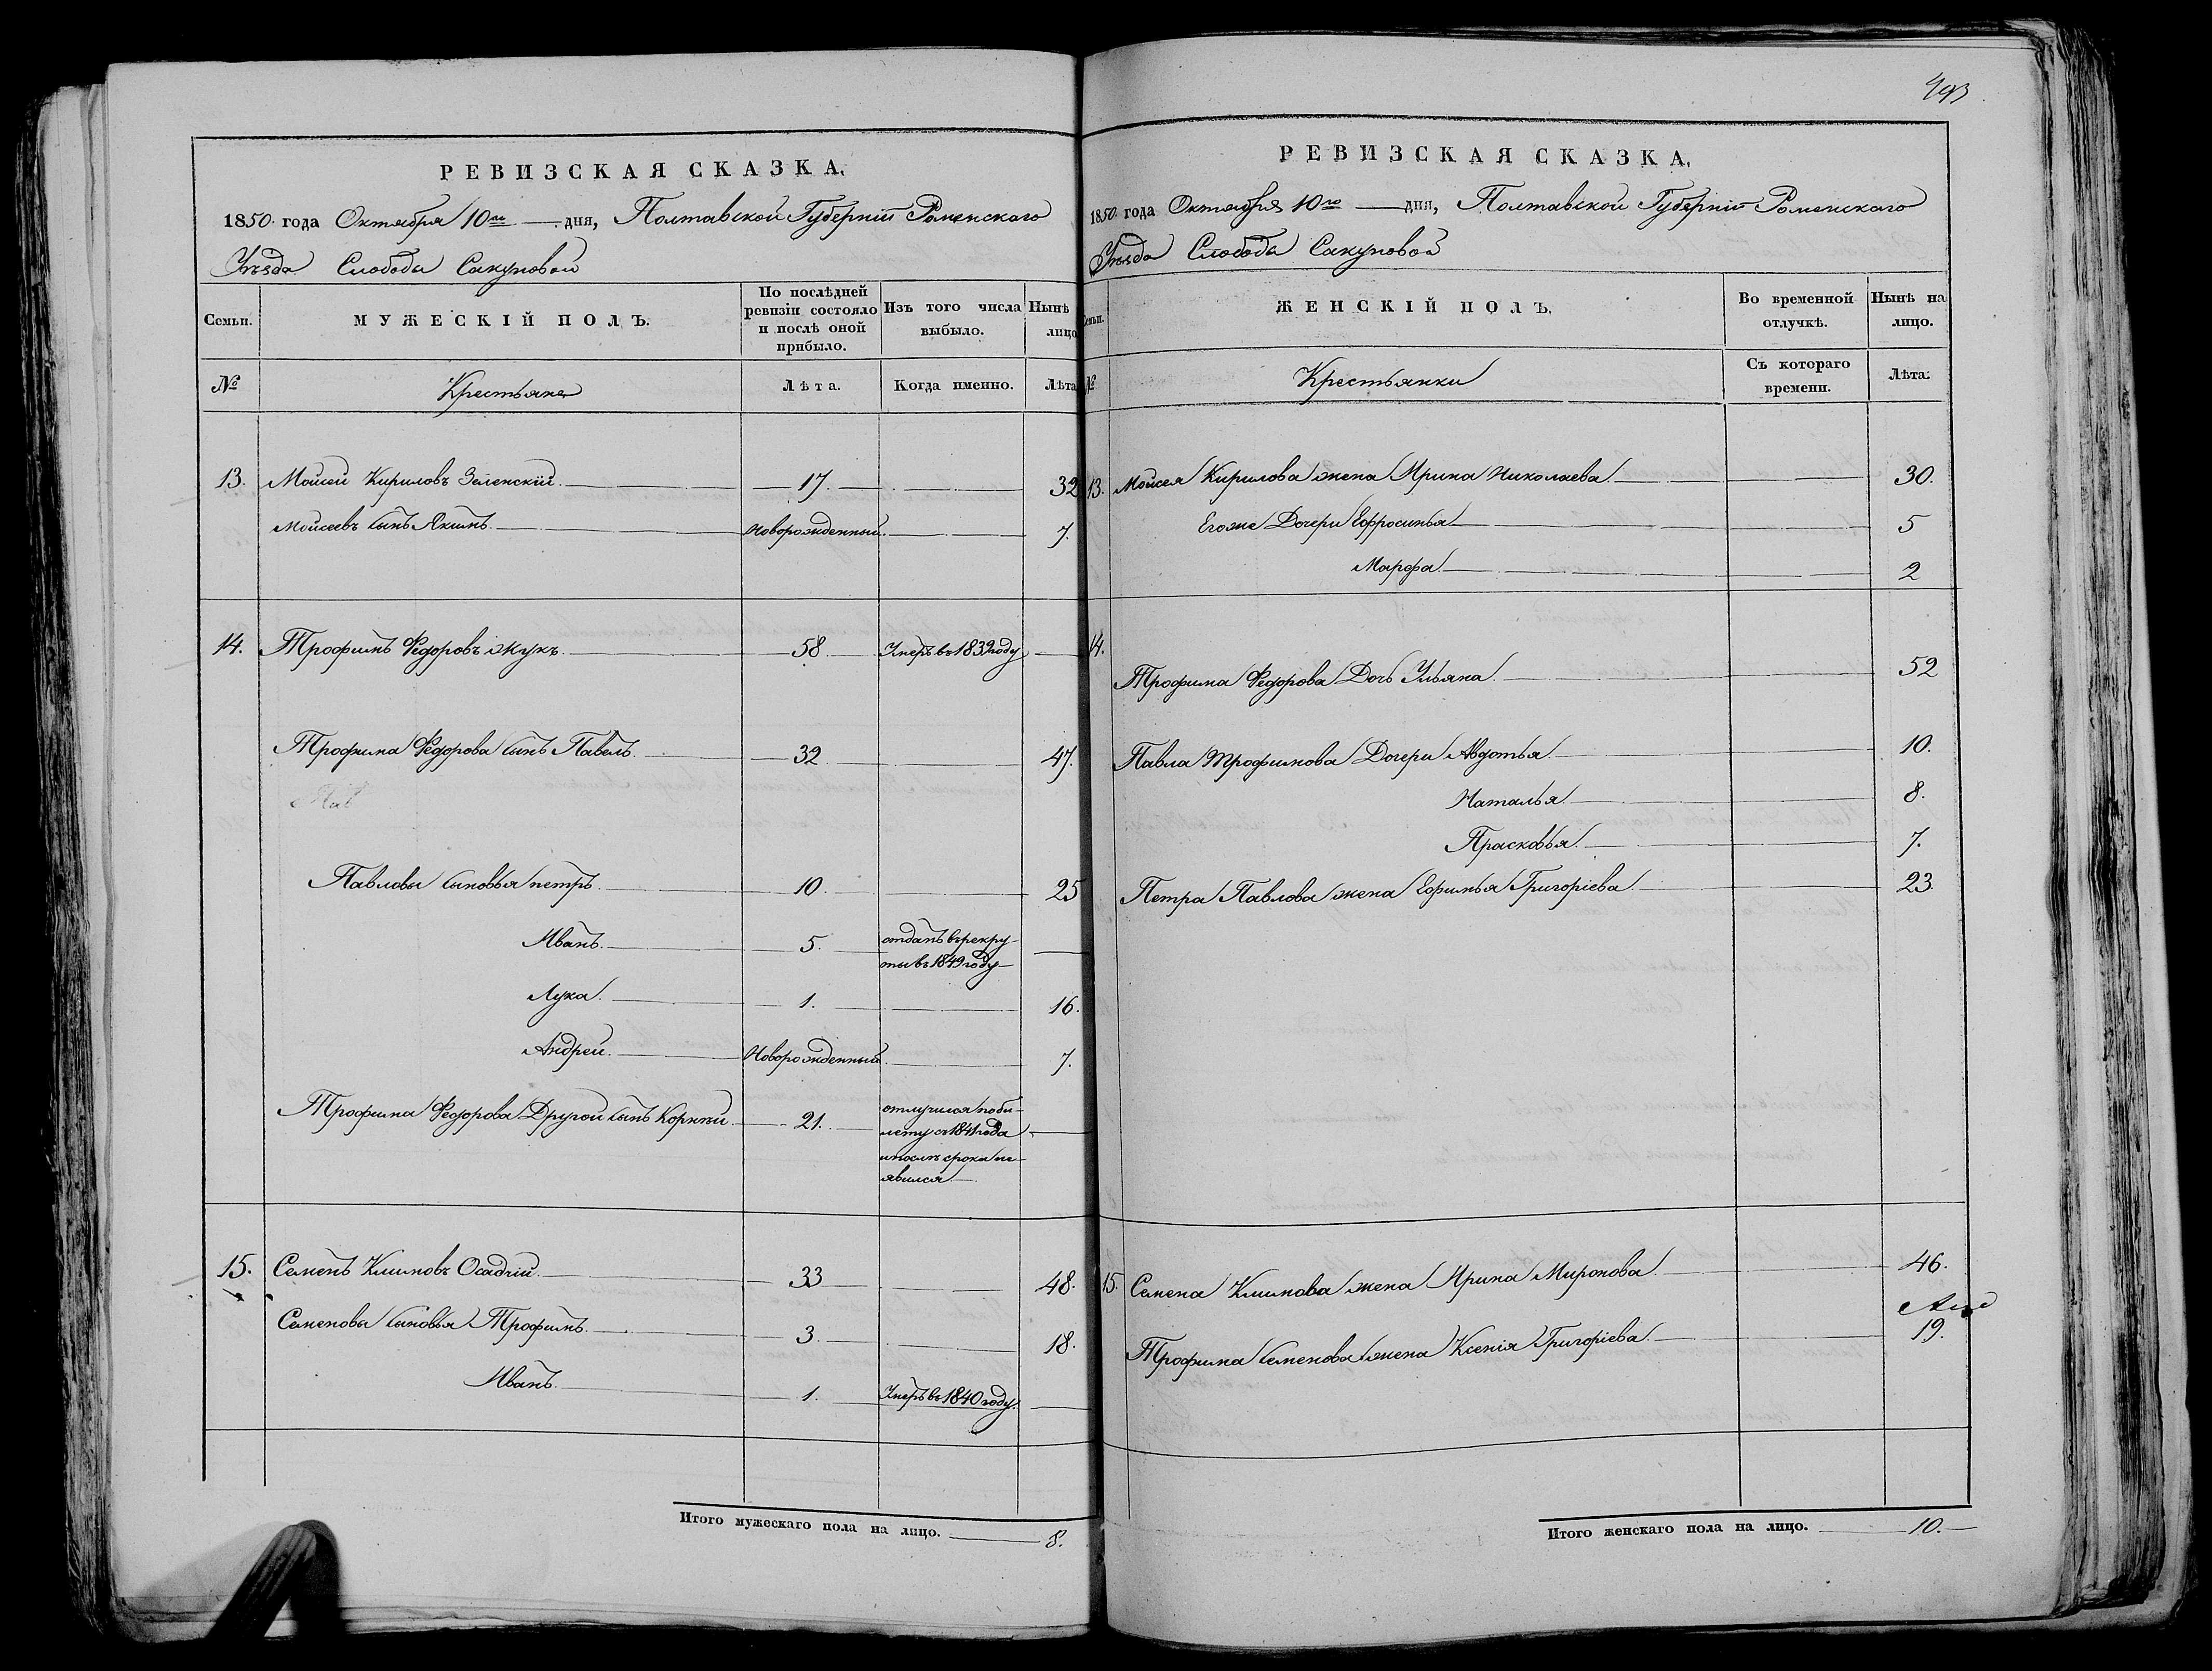 РЕВИЗСКАЯ СКАЗКА.
1850 года Октября 10го дня, Полтавской Губерніи Роменскаго
Уѣзда Слободы Сакуновой
Семьи.
МУЖЕСКІЙ ПОЛЪ.
По послѣдней ревизіи состояло и послѣ оной прибыло.
Изъ того числа выбыло.
Нынѣ лицо
№
Крестьяне
Лѣта.
Когда именно.
Лѣта
13. Моисей Кириловъ Зеленскій. 17. 32
Моисеевъ сынъ Якимъ. Новорожденный. 7.
14. Трофимъ Федоровъ Жукъ. 58. Умеръ въ 1839 году
Трофима Федорова сынъ Павелъ. 32. 47.
Пав
Павловы сыновья петръ. 10. 25
Иванъ. 5. отданъ въ рекру-
ты въ 1849 году
Лука. 1. 16.
Андрей. Новорожденный. 7.
Трофима Федорова Другой сынъ Корнѣй. 21. отлучился поби-
лету съ 1841 года
и послѣ срока не
явился
15. Семенъ Климовъ Осадчій. 33 48.
Семеновы сыновья Трофимъ. 3. 18.
Иванъ. 1. Умеръ въ 1840 году.
Итого мужескаго пола на лицо. 8.
493
РЕВИЗСКАЯ СКАЗКА.
1850 года Октября 10го дня, Полтавской Губерніи Роменскаго
Уѣзда Слободы Сакуновой
Семьи.
ЖЕНСКІЙ ПОЛЪ.
Во временной отлучкѣ.
Нынѣ на лицо.
№
Крестьянки
Съ котораго времени.
Лѣта.
13. Моисея Кирилова жена Ирина Николаева. 30.
Егоже Дочери Ефросинья 5
Марфа. 2
14.
Трофима Федорова Дочь Ульяна. 52
Павла Трофимова Дочери Авдотья. 10.
Наталья. 8.
Прасковья. 7.
Петра Павлова жена Ефимья Григоріева. 23.
15. Семена Климова жена Ирина Миронова. 46.
Трофима Семенова жена Ксенія Григоріева. 19.
Итого женскаго пола на лицо. 10.